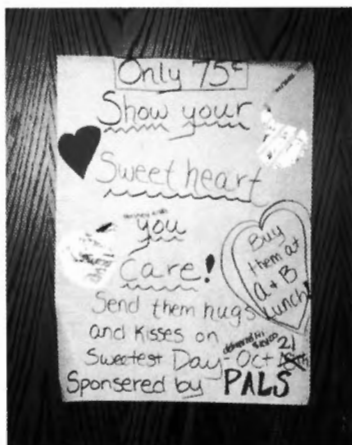 Only 75¢
Show your
Sweetheart
you
care!
Buy
them at
A + B
Lunch!
Send them hugs
and kisses on
Sweetest Day - Oct 21
Sponsered by PALS